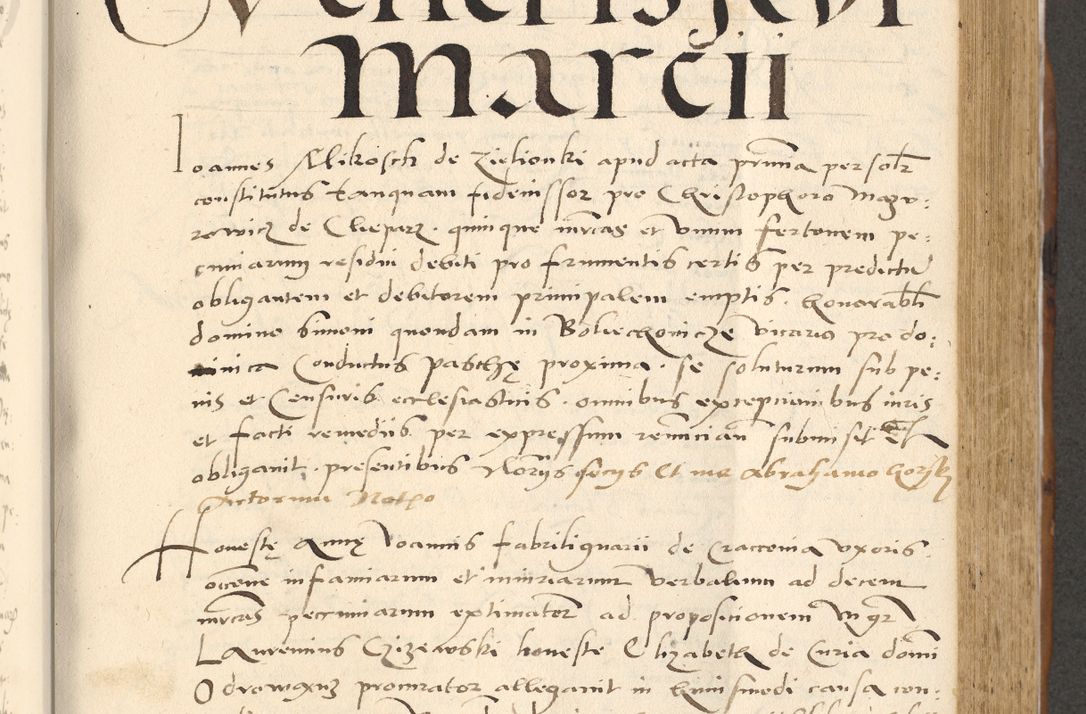 Veneris xvi
Marcii
Ioannes Mikosch de Zielionki apud acta prmia personlr
constitutus tanquam fideiussor pro Christophoro Mazu:
rowicz de Clieparz. quinque mrcas et unum fertonem pe:
cuniarum residui debiti pro frumentis certis per predictu
obligantem et debitorem principalem emptis. honorabli
domino Simoni quondam in Bolechowicze vicario pro do:
minica Conductus Paschę proxima. se soluturum sub pe:
nis et Censuris ecclesiasticis. omnibus excepcionibus iuris
et facti remediis per expressum renuncian submisit et
obligauit. presentibus Noriis secus Et me Abrahamo
Actorum Notro
Honestę Annę Ioannis fabrilignarii de Cracouia uxoris
occne infamiarum et iniuriarum verbalium ad decem
mrcas pecuniarum extimator ad proposicionem Mgr
Laurencius Czizewski honeste Elizabeth de Curia domi
Odrowąz procurator allegauit in huiusmodi causa con: